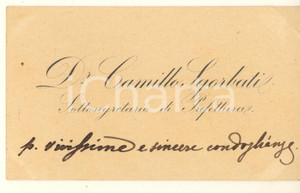 Dr. Camillo Sgorbati
Sottosegretario di Prefettura
p. vivissime e sincere condoglianze.